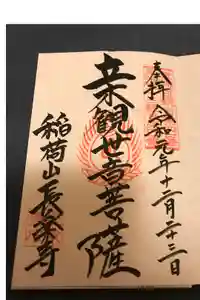 奉拝 令和元年十二月二十三日
立木観世音菩薩
稲荷山長寺